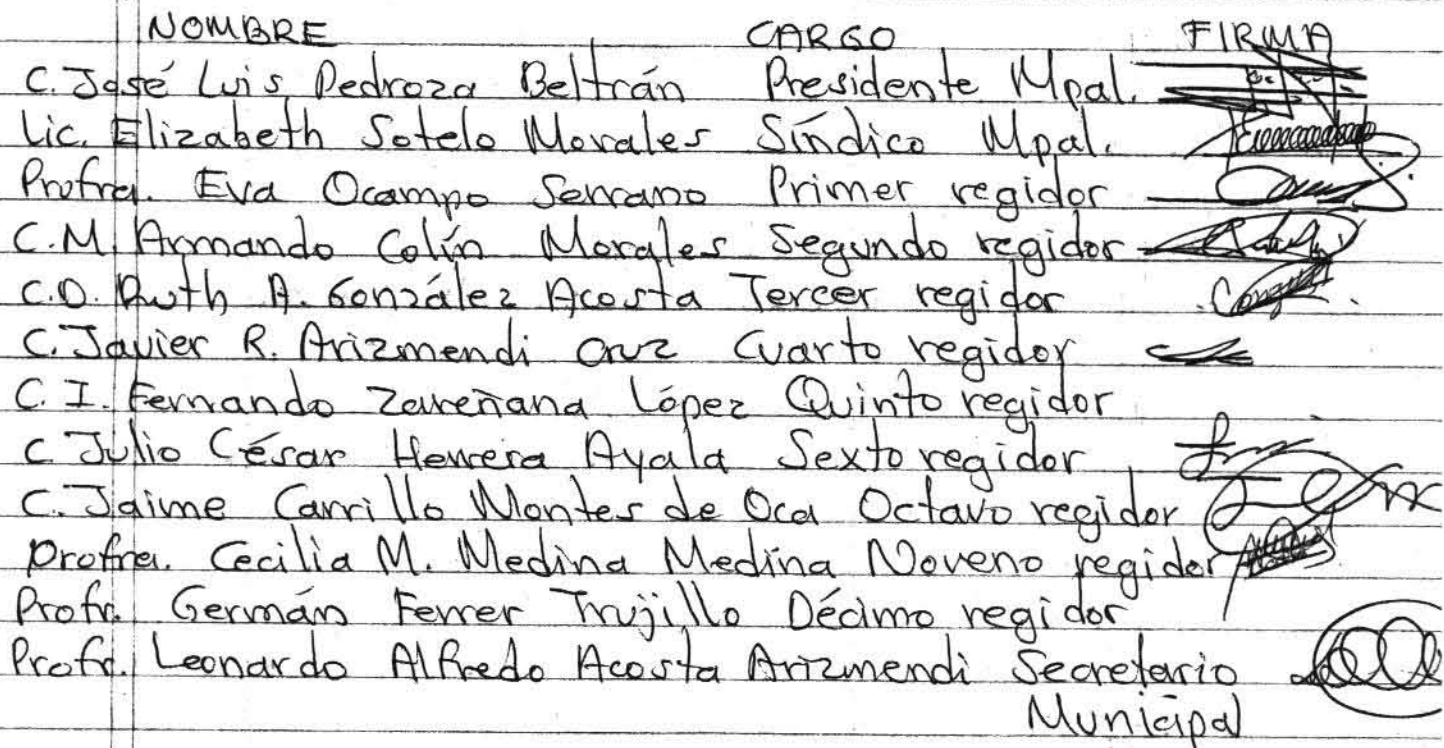 NOMBRE CARGO FIRMA
C. José Luis Pedroza Beltrán Presidente Mpal.
Lic. Elizabeth Sotelo Morales Síndico Mpal.
Profra. Eva Ocampo Serrano Primer regidor
C.M. Armando Colín Morales Segundo regidor
C.D. Ruth A. González Acosta Tercer regidor
C. Javier R. Arizmendi Cruz Cuarto regidor
C. I. Fernando López Quinto regidor
C Julio César Herrera Ayala Sexto regidor
C. Jaime Carrillo Montes de Oca Octavo regidor
Profra. Cecilia M. Medina Medina Noveno regidor
Profr. Germán Ferrer Trujillo Décimo regidor
Profr. Leonardo Alfredo Acosta Arizmendi Secretario
Municipal